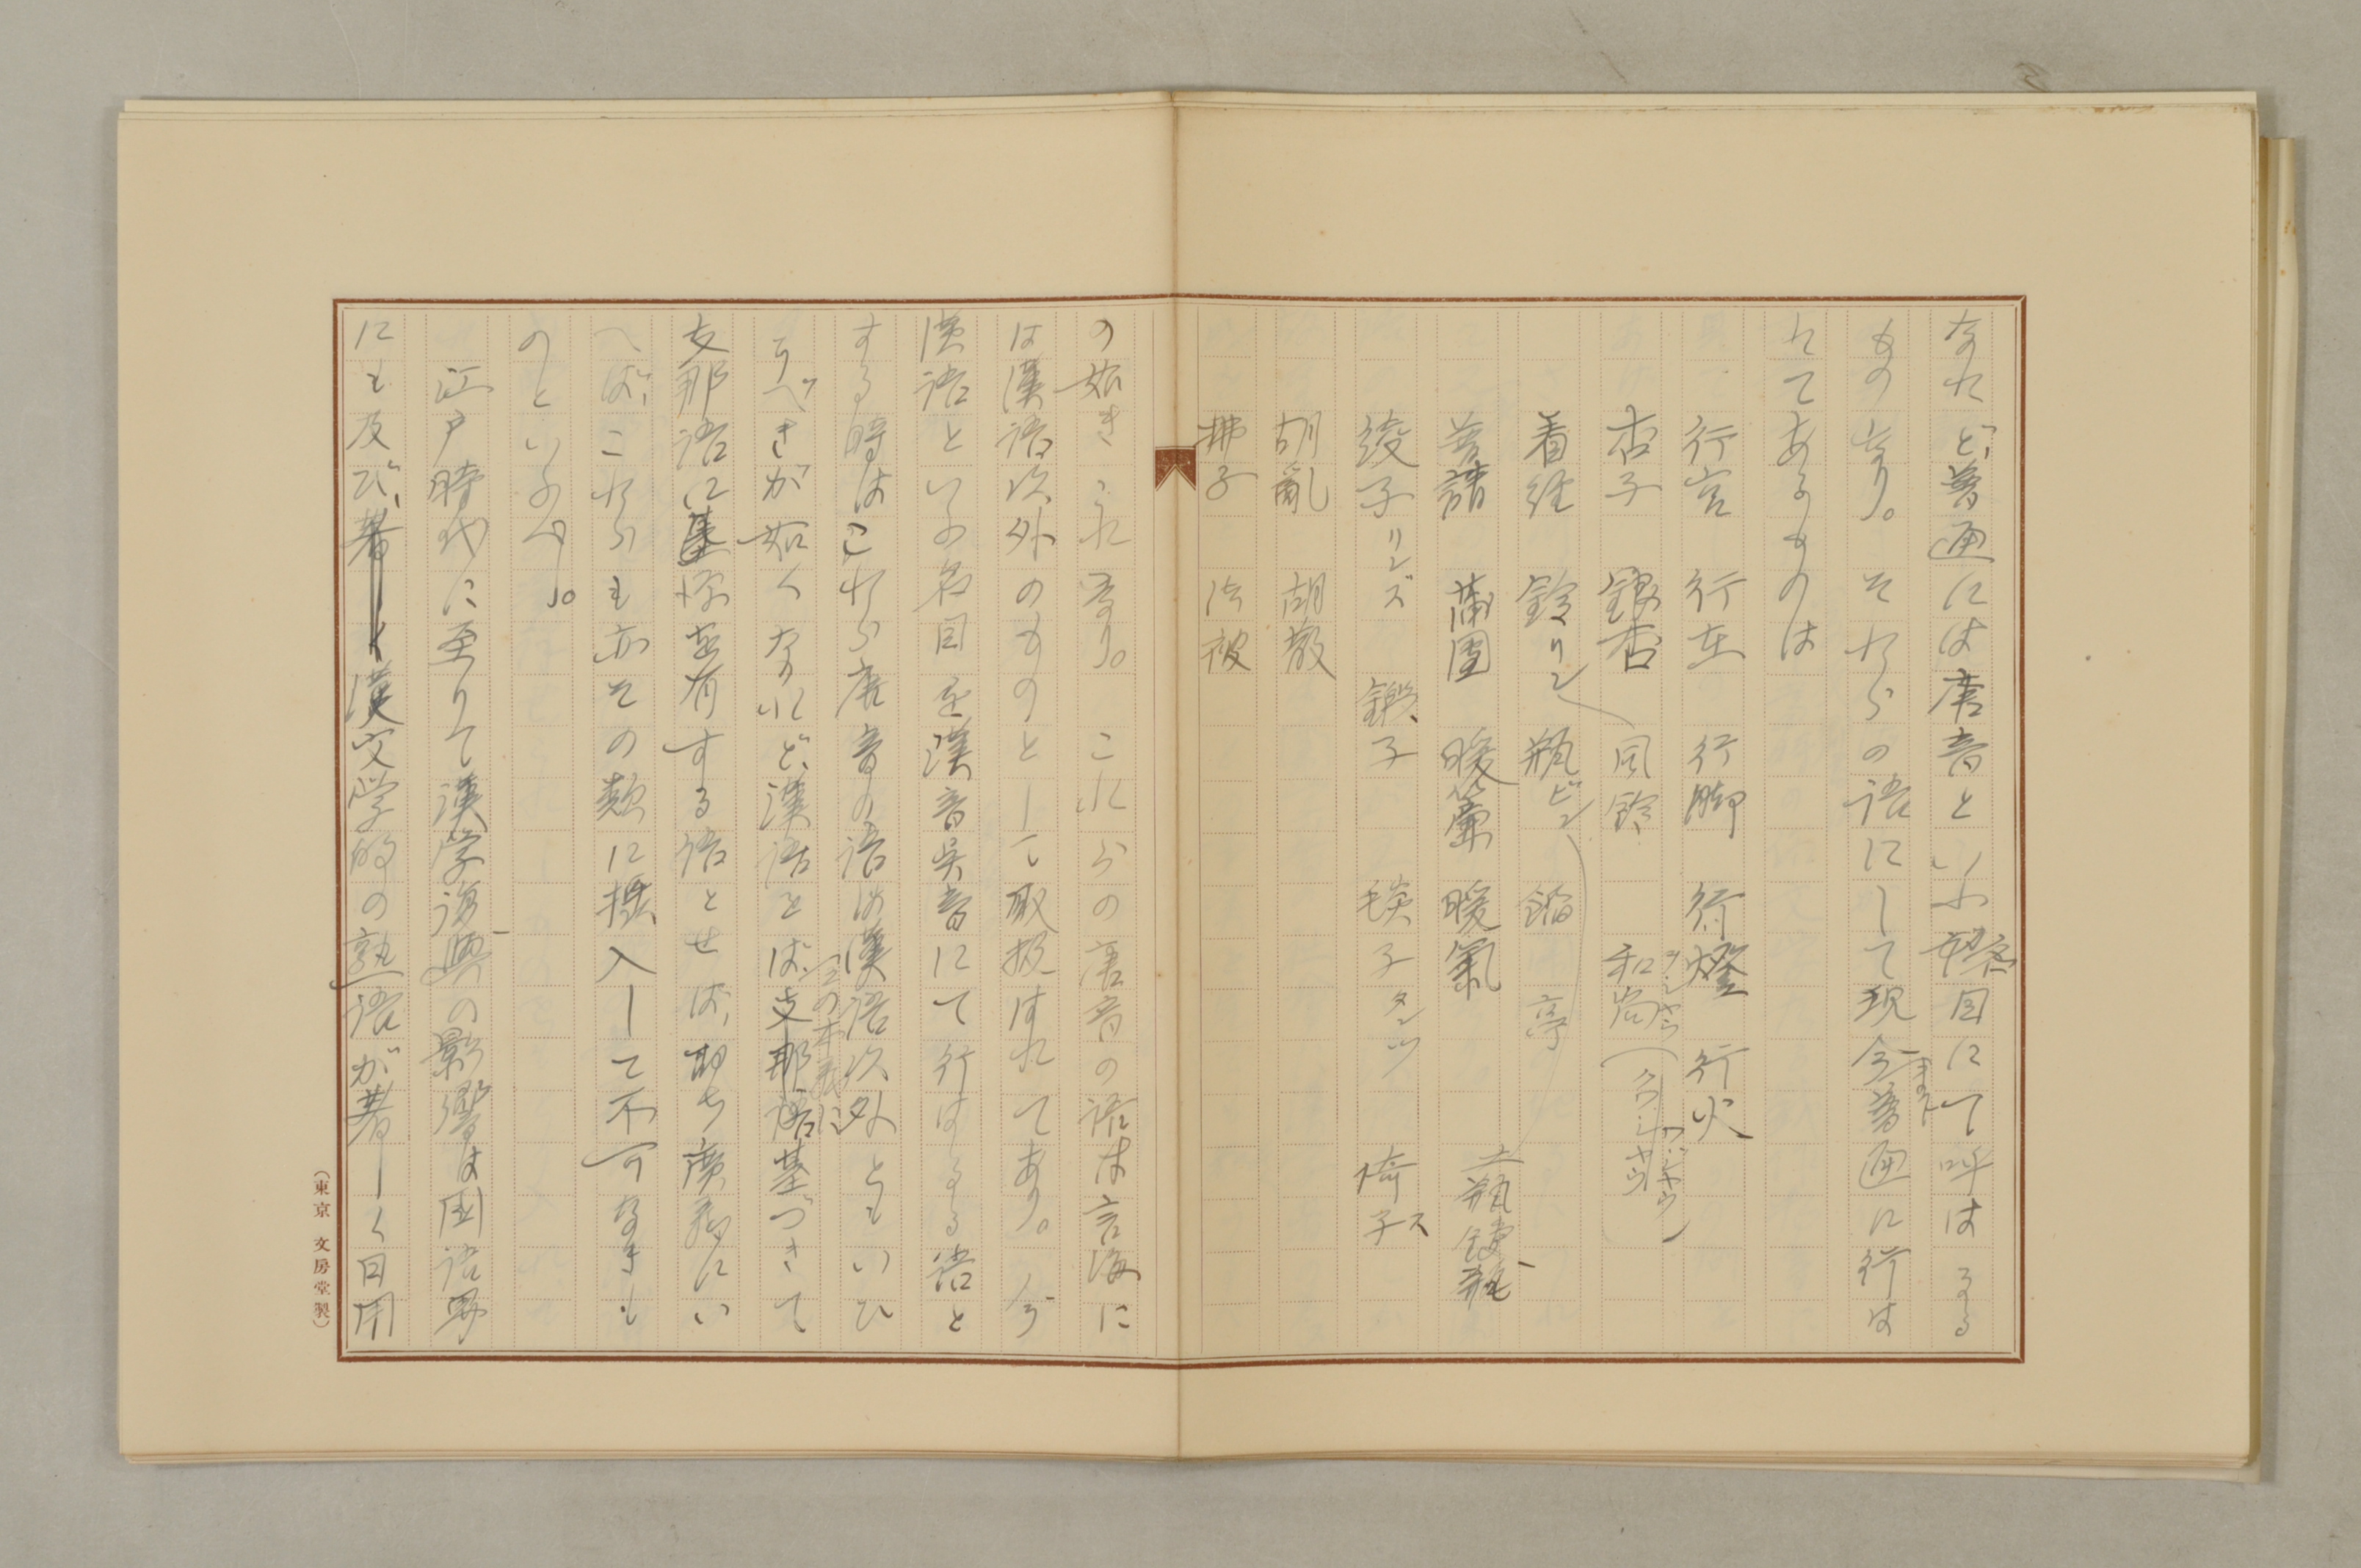 なれど、普通には唐音といふ名目にて呼はるる
ものなり。それらの語にして現今まで普通に行は
れてあるものは
行宮　行在　行脚　行燈　行火
杏子　銀杏　風鈴　和尚
看経　鈴リン　瓶ビン　亭
普請　蒲団　暖簾　暖氣　土瓶
綾子リンズ　緞子　毯子タンツ　椅子ス
胡亂　胡散
拂子　法被
の如きこれなり。これらの唐音の語は言海に
は漢語以外のものとして取扱はれてあり。
漢語といふ名目を漢音呉音にて行はるる語と
する時はこれら唐音の語は漢語以外ともいひ
うべきが如くなれど、漢語をば、支那語に基づきて
支那語に基源を有する語とせば、即ち廣義にい
へば、これらも亦その類に攝入して不可なきも
のといふべし。
江戸時代に至りて漢学復興の影響は国語界
にも及び、漢文学的の熟語が著しく日用
（東京 文房堂製）